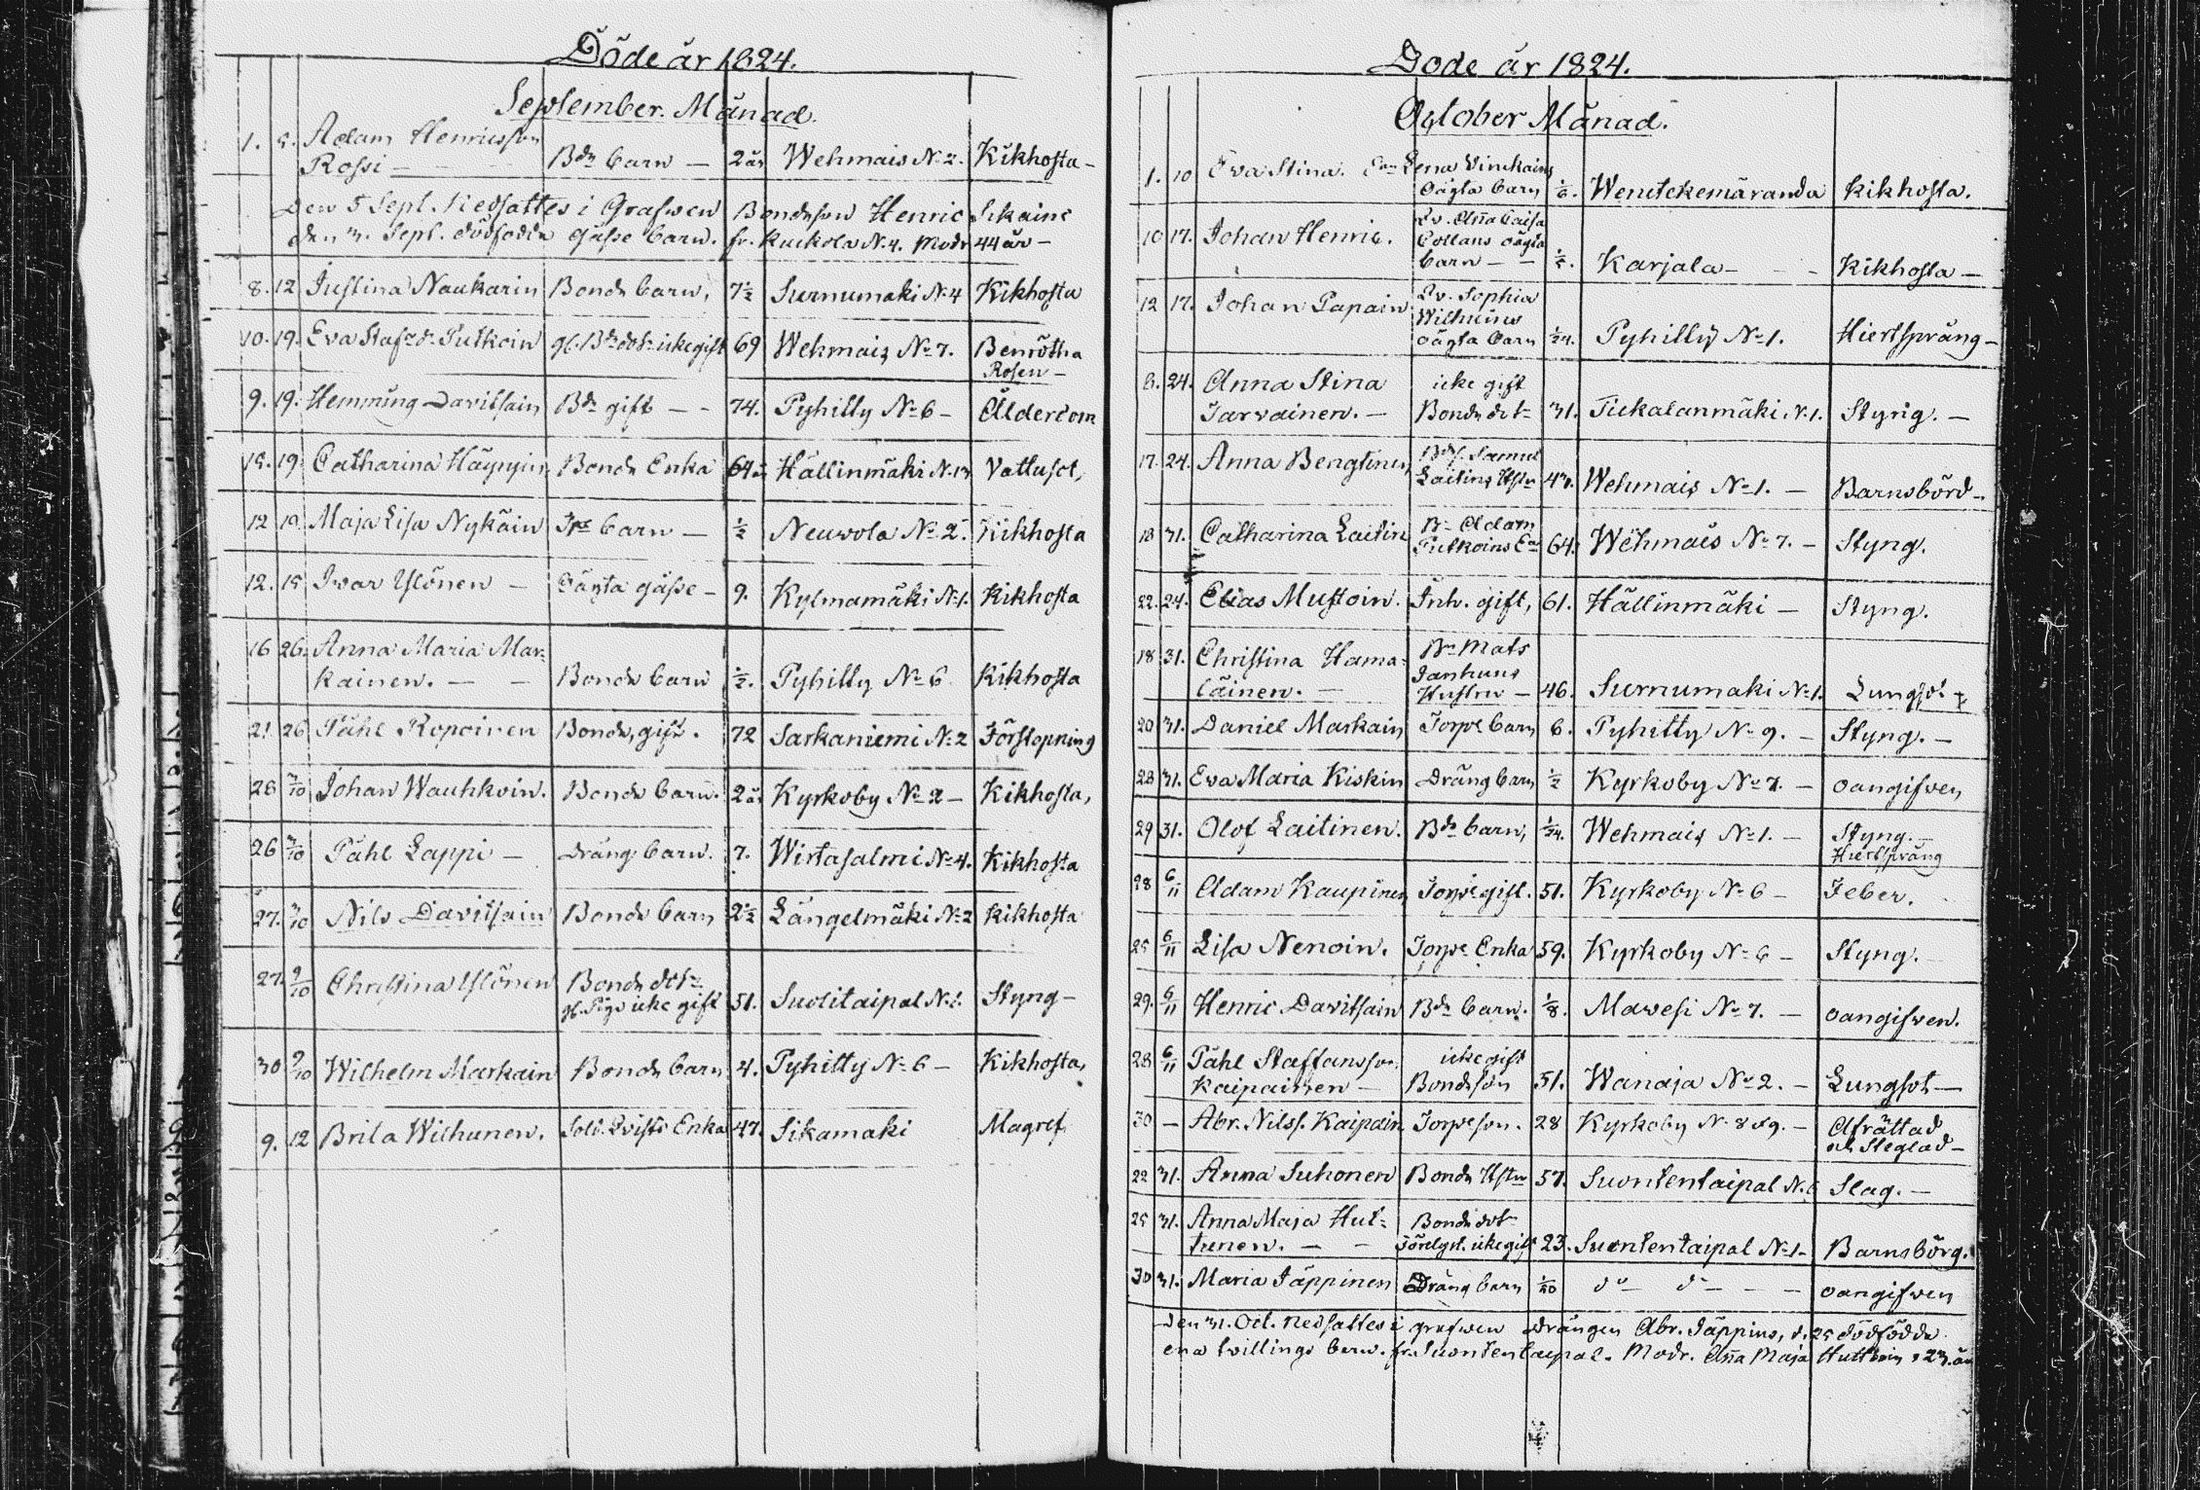 Döde år 1824.
September Månad.
1. 5. Adam Henricsson
Rossi — Bds barn — 2 år Wehmais N:o 2. Kikhosta —
Den 5 Sept. Nedsattes i Grafwen Bondeson Henric Ukains
den 3. Sept. dödfödda gåsse barn. fr. Kuckola N. 4. Modr 44 år —
8. 12 Justina Naukarin Bonde barn, 7½ Surnumaki N. 4 Kikhosta
10. 19. Eva Stafsdr Putkoin gl. Bde dotr icke gift 69 Wehmais N:o 7. Benrötha
Rosen —
9. 19. Hemming Davitsain Bde gift — - 74. Pyhitty N:o 6 - Ålderdom
15. 19. Catharina Häyryin Bonde Enka 64 år Hällinmäki N. 13 Vattusot,
12 19. Maja Lisa Nykäin Trp barn — ½ Neuvola N:o 2. Kikhosta
12. 15 Ivar Ylönen — Oägta gåsse - 9. Kylmamäki N:1. Kikhosta
16 26. Anna Maria Mar-
kainen. — — Bonde barn ½. Pyhitty N:o 6 Kikhosta
21 26 Påhl Ropoinen Bonde, gift. 72 Sarkaniemi N:2 Förstopning
26 3/10 Johan Wauhkoin. Bonde barn. 2 år Kyrkoby N:o 2 - Kikhosta,
26 3/10 Påhl Lappi — Dräng barn. 7. Wirtasalmi N:o 4. Kikhosta
27. 3/10 Nils Davitsain Bonde barn 2½ Längelmäki N:2 Kikhosta
27. 9/10 Christina Ylönen Bonde dotr
gl. Piga icke gift 51. Suolitaipal N:1. Styng -
30 9/10 Wilhelm Markain Bonde barn 4. Pyhitty N:o 6 - Kikhosta,
9. 12 Brita Wilhunen. Sold. Qvists Enka 47. Sikamaki Magref
Dode år 1824.
October Månad.
1. 10 Eva Stina. Ean Lena Vinikains
Oägta barn 1/6. Wenitckemäranda Kikhosta.
10 17. Johan Henric. Qv. Anna Caisa
Collans oägta
barn - - 1/5. Karjala - - - Kikhosta —
12 17. Johan Papain Qv. Sophia
Wilhuins
oägta barn 1/24. Pyhitty N:o 1. Hiertspräng -
8. 24. Anna Stina icke gift
Tarvainen. — Bonde dotr 31. Tickalanmäki N.1. Styng. —
17. 24. Anna Bengtines, Bds. Samuel
Laitins Hstu 47. Wehmais N:o 1. — Barnsbörd -
18 31. Catharina Laitin Bn Adam
Putkoins Ea 64. Wehmais N:o 7. - Styng.
22. 24. Elias Mustoin. Inh. gift, 61. Hällinmäki — Styng.
18 31. Christina Hama-
läinen. — Bn Mats
Janhuns
Hustru — 46. Surnumaki N:1. Lungsot
20 31. Daniel Markain Torpe barn 6. Pyhitty N:o 9. - Styng. -
28 31. Eva Maria Kiskin Dräng barn ½ Kyrkoby N:o 7. - oangifven
29 31. Olof Laitinen. Bde barn, 1/24. Wehmais N:o 1. - Styng. -
Hiertspräng
28 6/11 Adam Kaupinen Torpe gift. 51. Kyrkoby N:o 6 - Feber.
25 6/11 Lisa Nenoin. Torpe Enka 59. Kyrkoby N:o 6 - Styng.
29. 6/11 Henric Davitsain Bde barn. 1/8. Mavesi N:o 7. - oangifven.
28 6/11 Påhl Staffansson icke gift
Kaipainen — Bondeson 51. Wanaja N:o 2. - Lungsot —
30 — Abr. Nilss. Kaipain Torpeson. 28 Kyrkoby N. 8 o 9. - Afrättad
och Steglad -
22 31. Anna Suhonen Bonde Hstu 57. Suontentaipal N. 6 Slag. -
25 31. Anna Maja Hut-
tunen. — — Bonde dotr
Förelgd. icke gift 23. Suontentaipal N:1 - Barnsbörg.
30 31. Maria Täppinen Dräng barn 1/20 do — do — — oangifven
Den 31. Oct. Nedsattes i grafwen Drängen Abr. Täppins, d. 25 dödfödda
ena tvillings barn. fr. Suontentaipal. Modr. Anna Maja Huttoin, 23. år